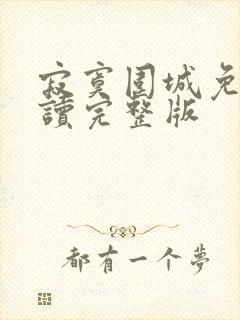 寂寞围城免
讀完整版
都有一个夢